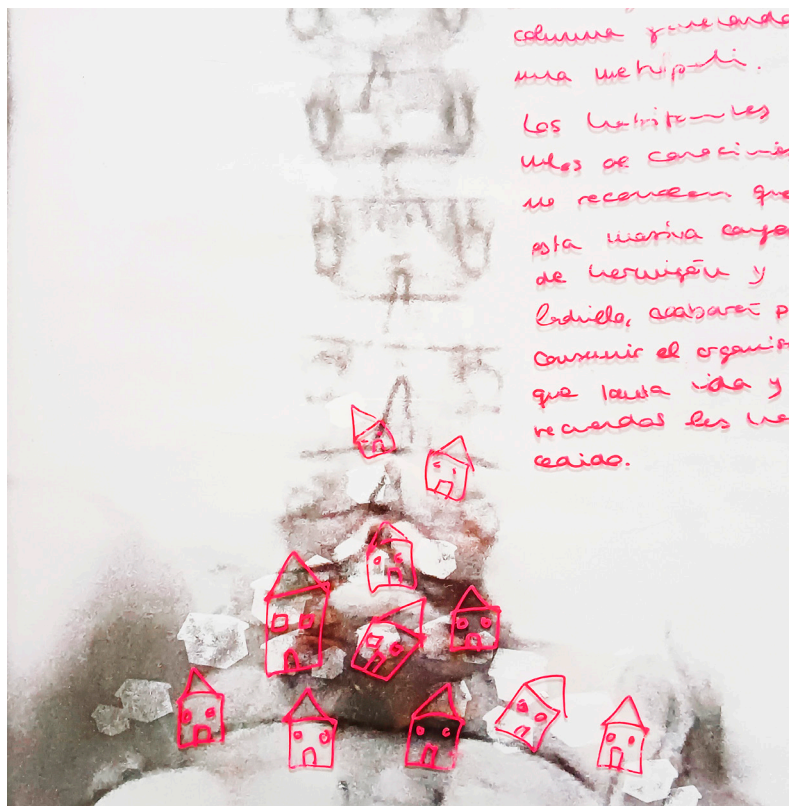 columna generando
una metrópoli.
Los habitantes
de
no recuerdan que
esta masiva carga
de hormigón y
ladrillo, acabará p
consumir el organis
que tanta vida y
recuerdos les ha
cedido.